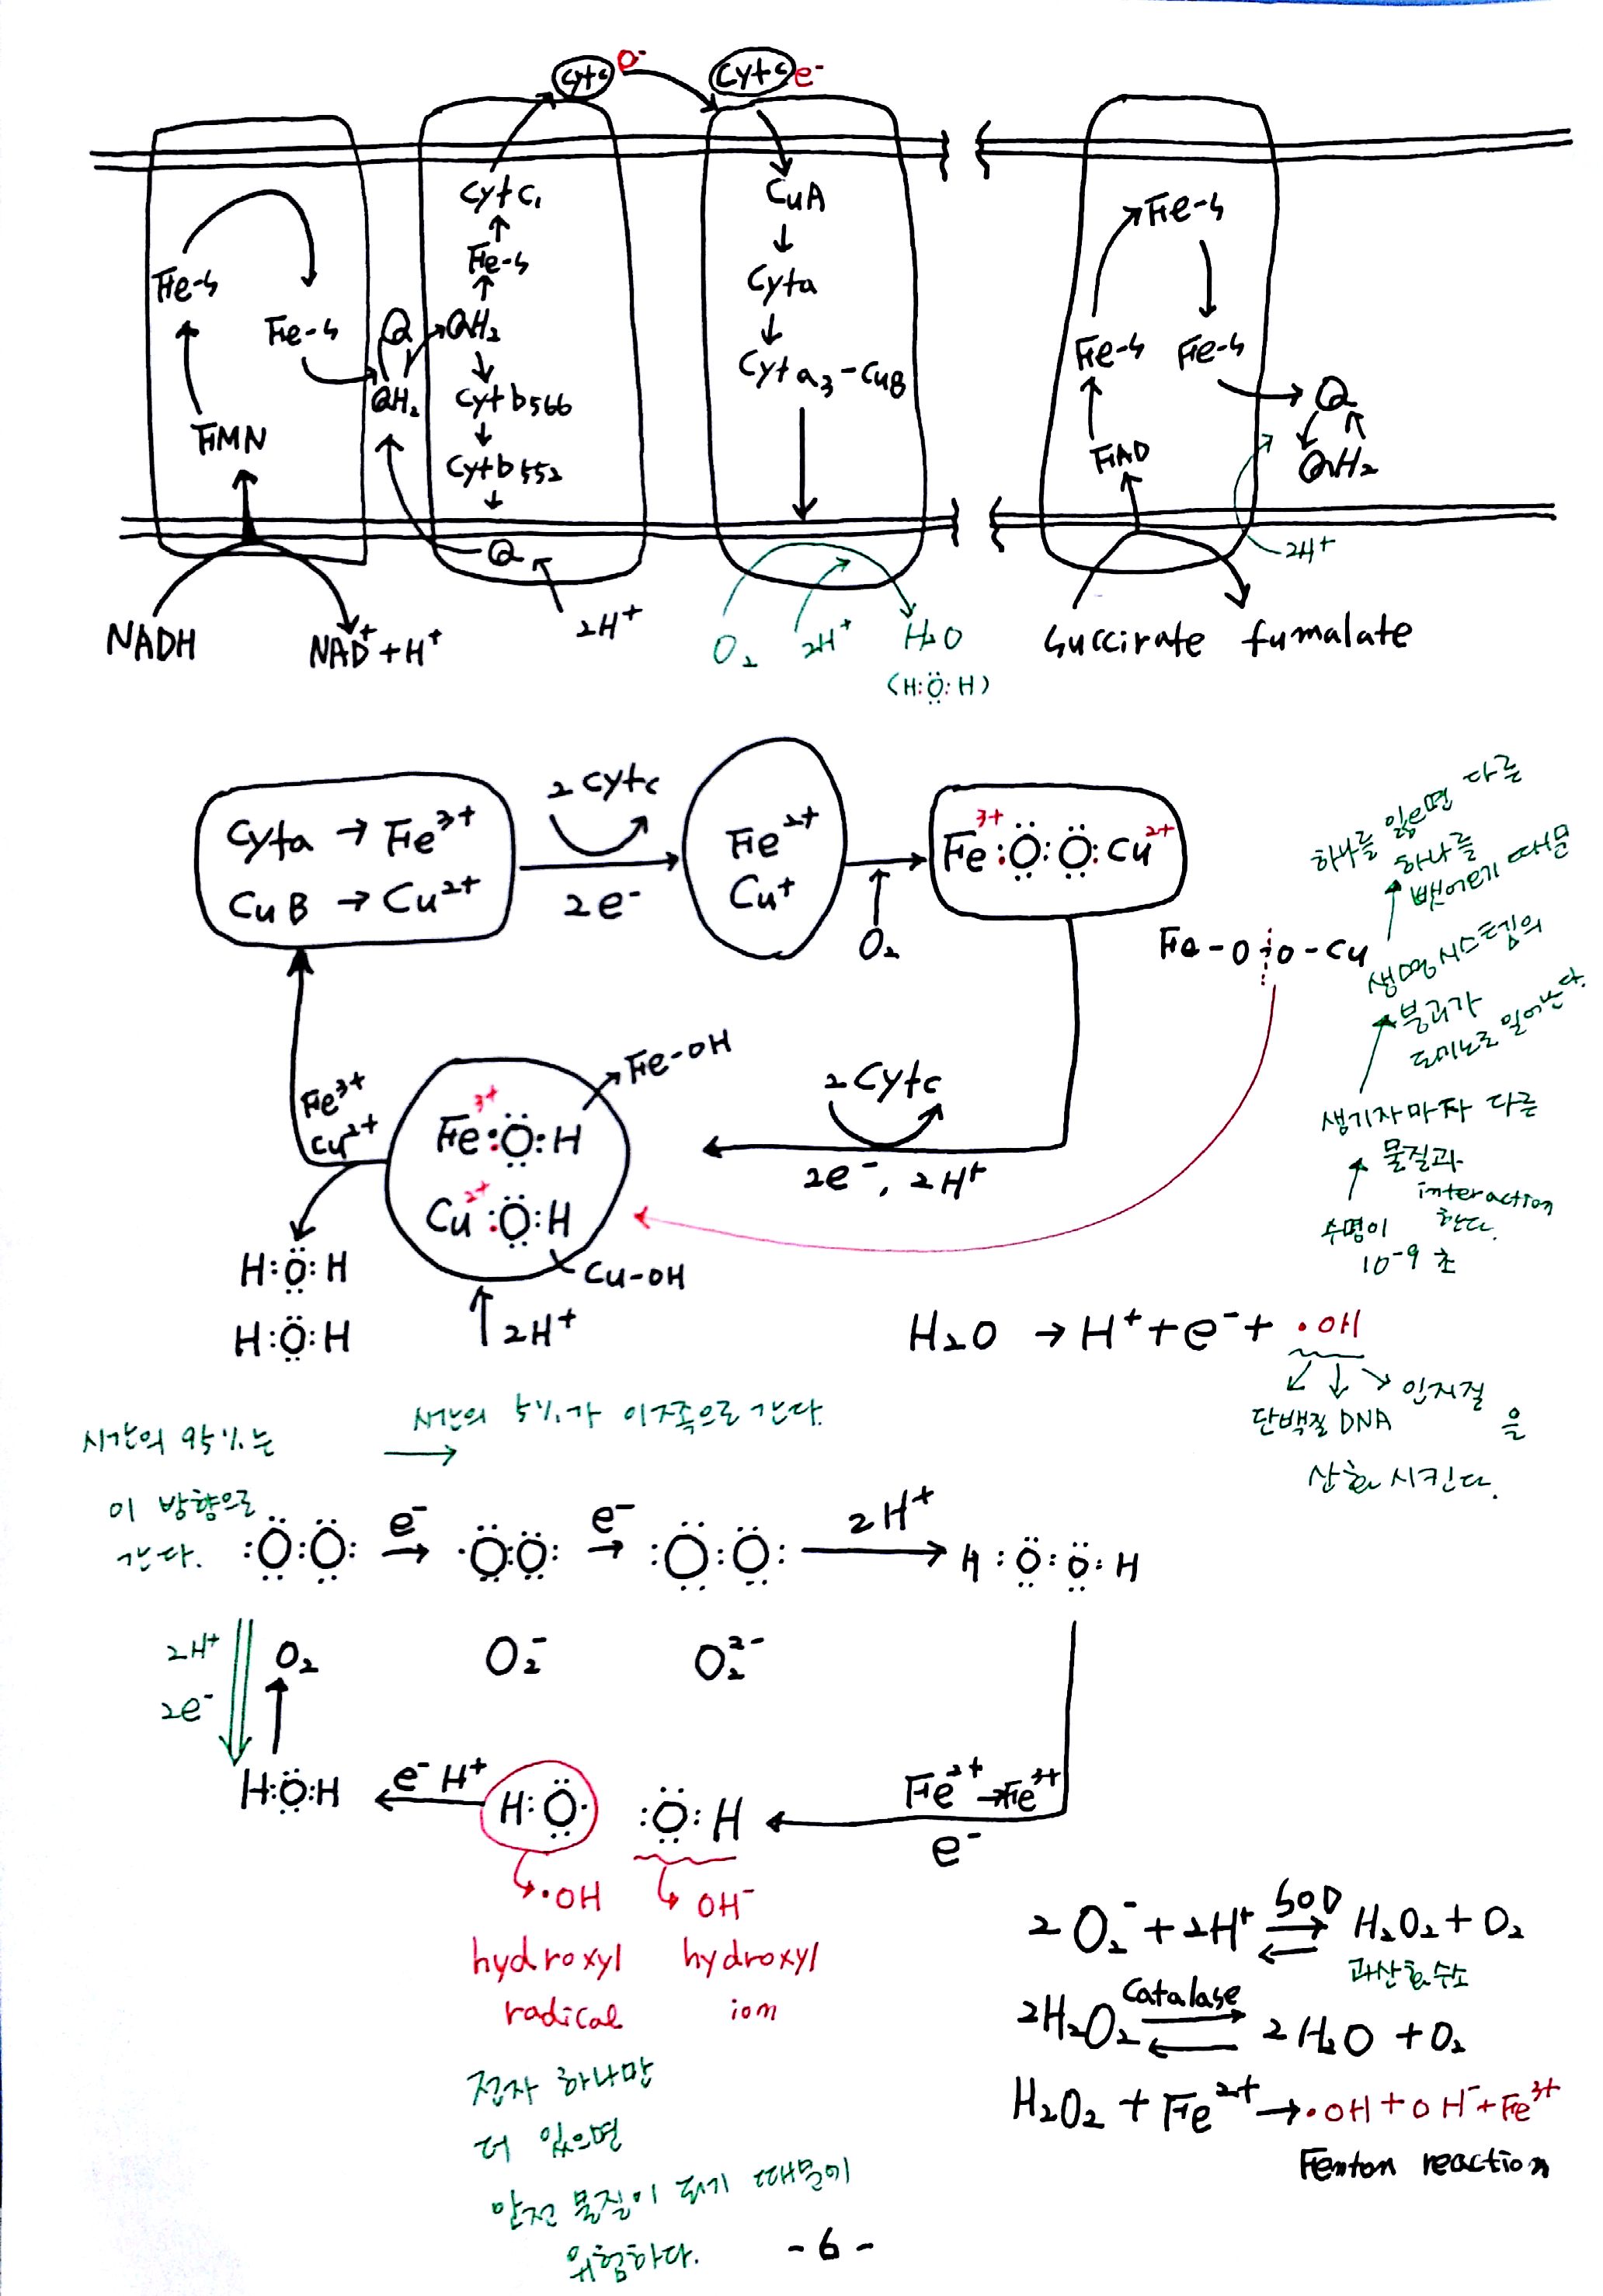 Cytc e-
Cytc e-
Cytc₁
Fe-S
QH₂
Cytb566
Cytb552
Q
2H+
Fe-S
Fe-S
FMN
Q
QH₂
NADH
NAD+ + H+
CuA
Cyta
Cyta₃-CuB
O₂
2H+
H₂O
(H:Ö:H)
Fe-S
Fe-S
Fe-S
FAD
Q
QH₂
2H+
Succirate fumalate
Cyta → Fe³⁺
CuB → Cu²⁺
2 Cytc
2e-
Fe²⁺
Cu⁺
O₂
Fe³⁺:Ö:Ö:Cu²⁺
Fe-O-O-Cu
하나를 잃으면 다른
하나를
뺏어오기 때문
생명시스템의
붕괴가
도미노로 일어난다.
생기자마자 다른
물질과
interaction
한다.
수명이
10-9 초
2 Cytc
2e-, 2H+
Fe-OH
Fe³⁺:Ö:H
Cu²⁺:Ö:H
Cu-OH
2H+
Fe³⁺
Cu²⁺
H:Ö:H
H:Ö:H
H₂O → H⁺ + e⁻ + •OH
단백질 DNA 인지질 을
산화 시킨다.
시간의 95%는
이 방향으로
간다.
시간의 5%가 이쪽으로 간다.
:Ö:Ö: e- → ·Ö:Ö: e- → :Ö:Ö: 2H+ → H:Ö:Ö:H
O₂ O₂⁻ O₂²⁻
2H+
2e-
H:Ö:H ← e- H+ H:Ö· :Ö:H
Fe²⁺→Fe³⁺
e-
•OH OH⁻
hydroxyl hydroxyl
radical ion
전자 하나만
더 있으면
안전 물질이 되기 때문에
위험하다.
2O₂⁻ + 2H⁺ SOD ⇌ H₂O₂ + O₂
과산화수소
2H₂O₂ Catalase ⇌ 2H₂O + O₂
H₂O₂ + Fe²⁺ → •OH + OH⁻ + Fe³⁺
Fenton reaction
- 6 -